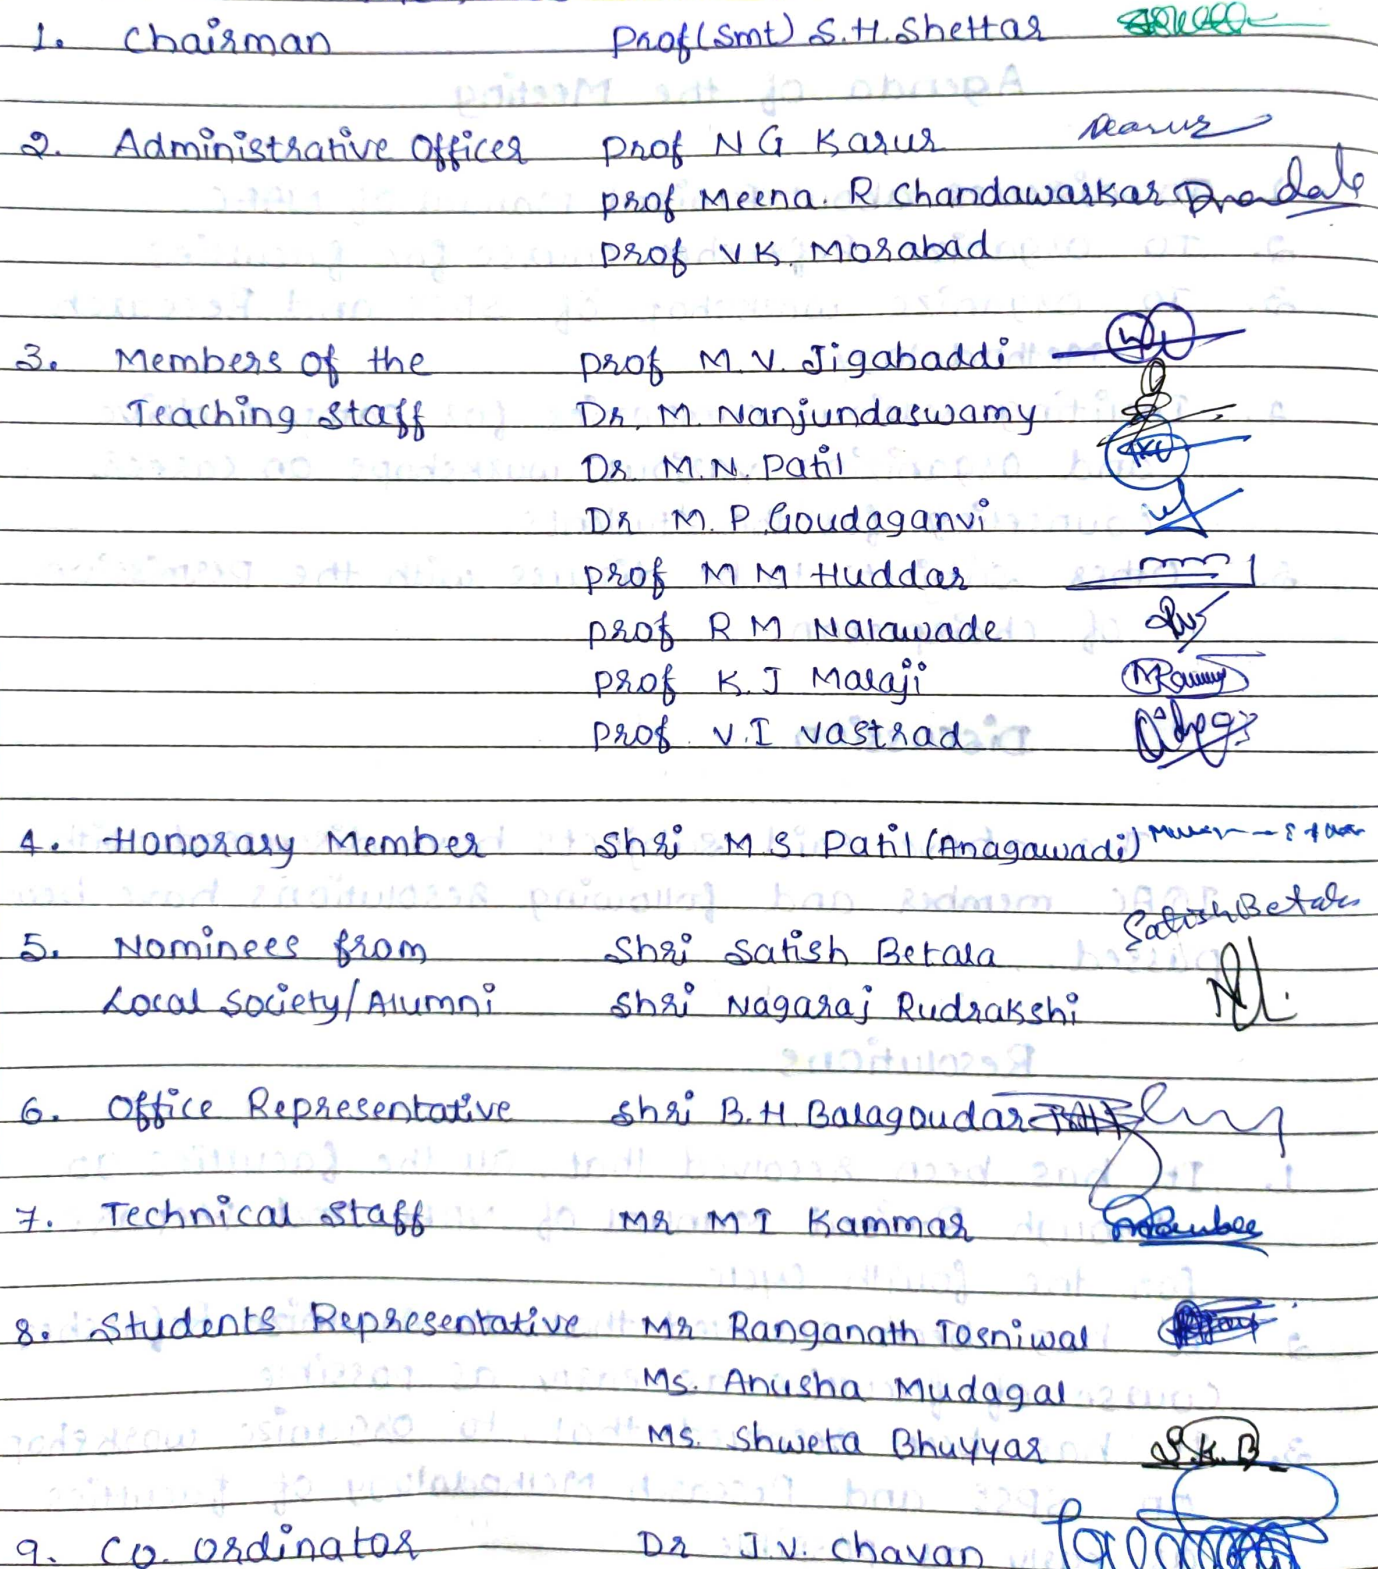 1. Chairman Prof(Smt) S.H. Shettar
2. Administrative Officer Prof N G Karur
Prof Meena. R. Chandawarkar
Prof V K. Morabad
3. Members of the Prof M. V. Jigabaddi
Teaching Staff Dr. M. Nanjundaswamy
Dr. M. N. Patil
Dr M. P. Goudaganvi
Prof M M Huddar
Prof R M Nalawade
Prof K. J Malaji
Prof. V. I Vastrad
4. Honorary Member Shri M. S. Patil (Anagawadi)
Satish Betala
5. Nominees from Shri Satish Betala
Local Society/Alumni Shri Nagaraj Rudrakshi
6. Office Representative Shri B. H. Balagoudar
7. Technical Staff Mr M I Kammar
8. Students Representative Mr Ranganath Tosniwal
Ms. Anusha Mudagal
Ms. Shweta Bhuyyar S.K.B
9. Co. ordinator Dr J. V. Chavan